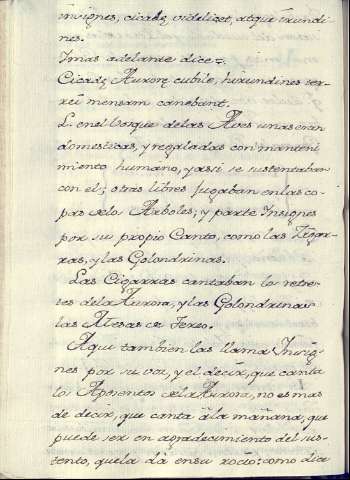 insignes, cicadę videlicet, atque irundi
nes.
Ymas adelante dice=
Cicadę Aurorę cubile, hirundines ter-
rei mensam canebant.
L. en el Vosque de las Aves unas eran
domesticas, y regaladas con manteni
miento humano, y assi se sustentaban
con el; otras libres jugaban en las co-
pas de los Arboles; y parte Insignes
por su propio Canto, como las Zigar-
ras, y las Golondrinas.
Las Cigarras cantaban los retre-
tes de la Aurora, y las Golondrinas
las Mesas de Tereo.
Aqui tambien las llama Insig-
nes por su voz, y el decir, que canta
los Aposentos de la Aurora, no es mas
de decir, que canta á la mañana, que
puede ser en agradecimiento del sus-
tento, que la dà en su rocío: como dice